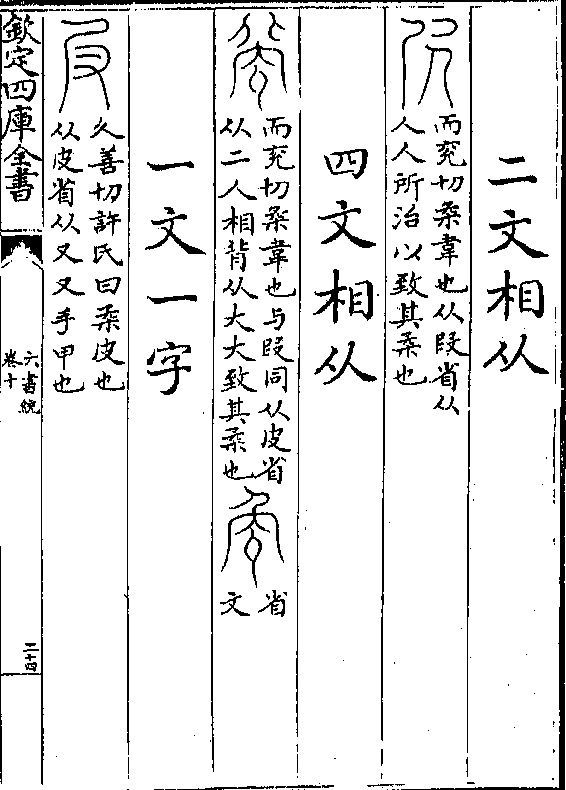 二文相从
而兖切柔韋也从省从
人人所治以致其柔也
四文相从
而兖切柔韋也与同从皮省
从二人相背从大大致其柔也
省
文
一文一字
久善切許氏曰柔皮也
从皮省从又又手甲也
欽定四庫全書
六書統
卷十
二十四